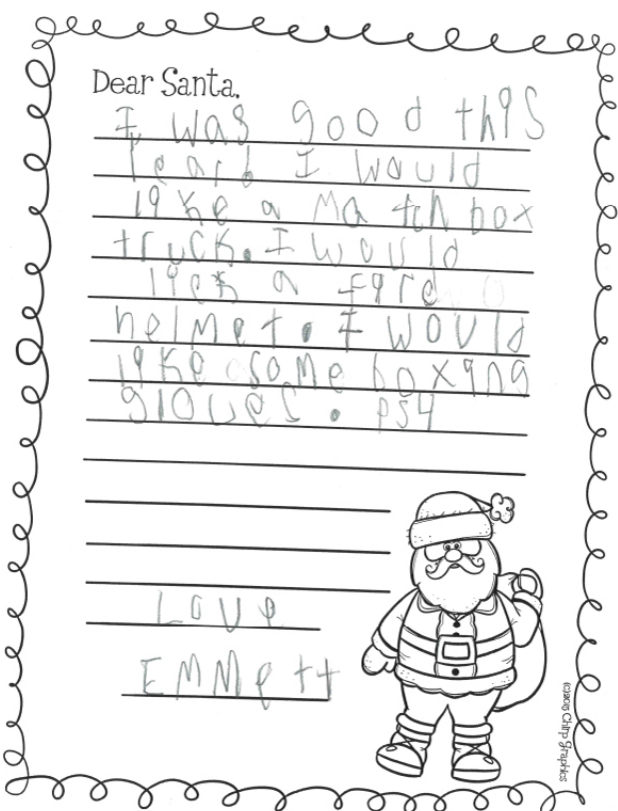 Dear Santa,
I was good this
Iear. I would
like a Matchbox
truck. I would
lick a fire
helmet. I would
like some boxing
gloves. ps4
Love
EMMett
©2015 Chirp Graphics